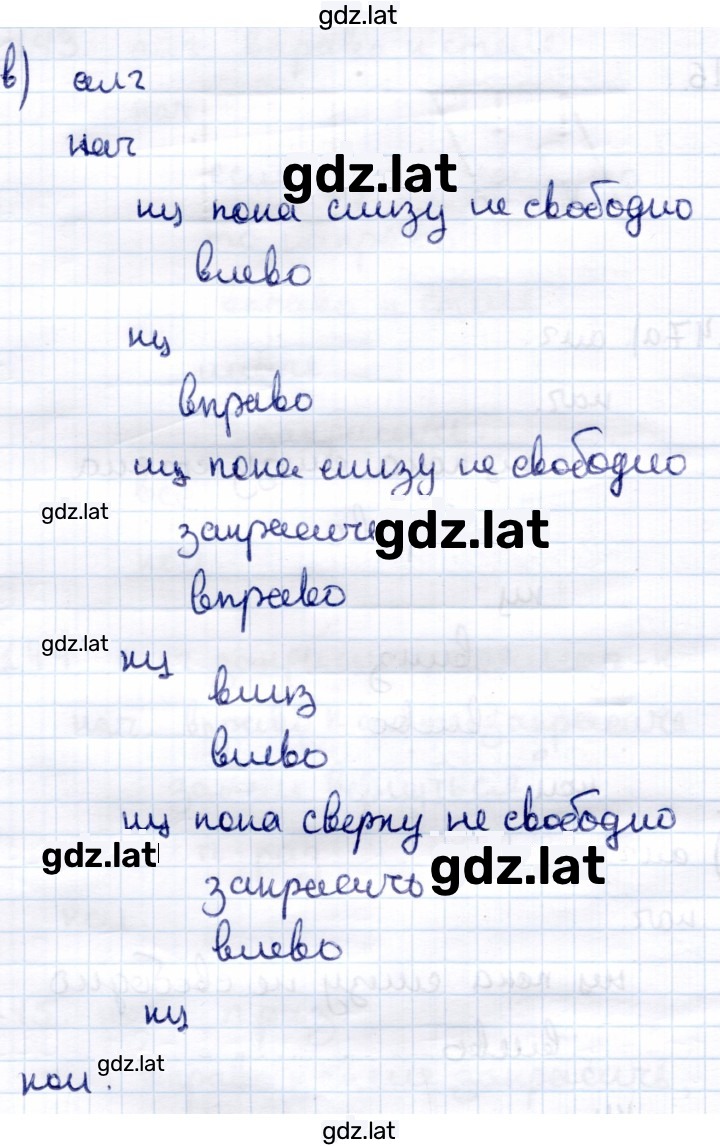 gdz.lat
в) алг
нач
gdz.lat
нц пока снизу не свободно
влево
кц
вправо
нц пока снизу не свободно
gdz.lat
закрасить gdz.lat
вправо
gdz.lat
кц
вниз
влево
нц пока сверху не свободно
gdz.lat
закрасить gdz.lat
влево
кц
gdz.lat
кон.
gdz.lat